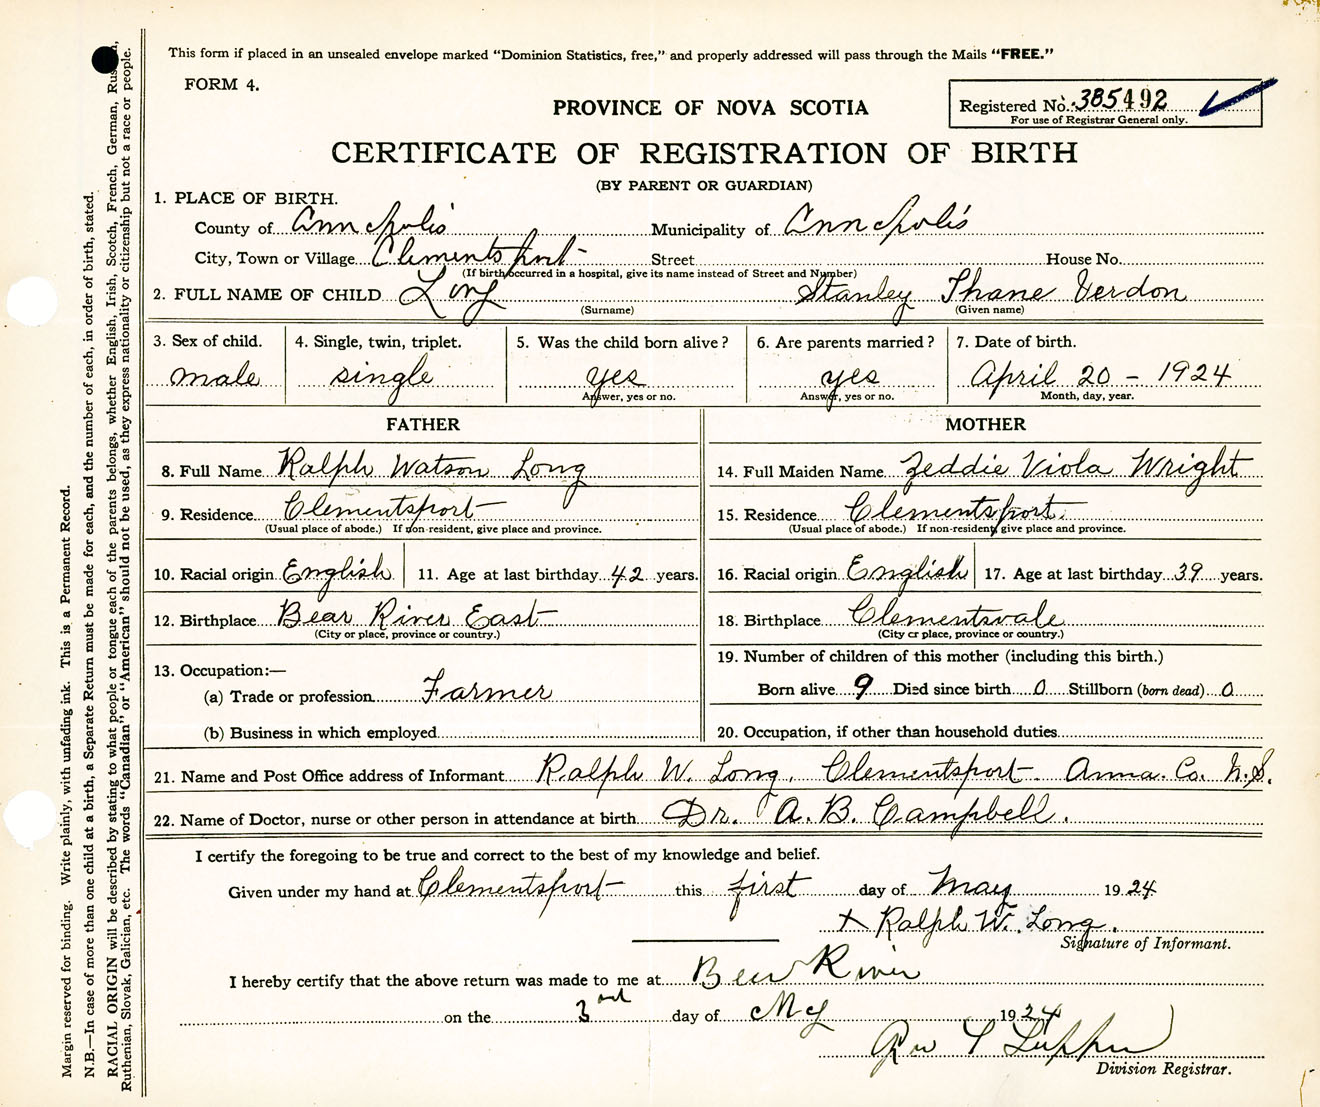 This form if placed in an unsealed envelope marked "Dominion Statistics, free," and properly addressed will pass through the Mails "FREE."
FORM 4.
PROVINCE OF NOVA SCOTIA
Registered No. 385492
For use of Registrar General only.
CERTIFICATE OF REGISTRATION OF BIRTH
(BY PARENT OR GUARDIAN)
1. PLACE OF BIRTH.
County of Annapolis Municipality of Annapolis
City, Town or Village Clementsport Street House No.
(If birth occurred in a hospital, give its name instead of Street and Number)
2. FULL NAME OF CHILD Long Stanley Thane Verdon
(Surname) (Given name)
3. Sex of child. 4. Single, twin, triplet. 5. Was the child born alive? 6. Are parents married? 7. Date of birth.
male single yes yes April 20 - 1924
Answer, yes or no. Answer, yes or no. Month, day, year.
FATHER MOTHER
8. Full Name Ralph Watson Long 14. Full Maiden Name Zeddie Viola Wright
9. Residence Clementsport 15. Residence Clementsport.
(Usual place of abode.) If non-resident, give place and province. (Usual place of abode.) If non-resident, give place and province.
10. Racial origin English 11. Age at last birthday 42 years. 16. Racial origin English 17. Age at last birthday 39 years.
12. Birthplace Bear River East 18. Birthplace Clementsvale
(City or place, province or country.) (City or place, province or country.)
13. Occupation:— 19. Number of children of this mother (including this birth.)
(a) Trade or profession Farmer Born alive 9 Died since birth 0 Stillborn (born dead) 0
(b) Business in which employed 20. Occupation, if other than household duties
21. Name and Post Office address of Informant Ralph W. Long. Clementsport Anna. Co. N.S.
22. Name of Doctor, nurse or other person in attendance at birth Dr. A. B. Campbell.
I certify the foregoing to be true and correct to the best of my knowledge and belief.
Given under my hand at Clementsport this first day of May 1924
x Ralph W. Long.
Signature of Informant.
I hereby certify that the above return was made to me at Bear River
on the 3rd day of My 1924
Division Registrar.
Margin reserved for binding. Write plainly, with unfading ink. This is a Permanent Record.
N.B.—In case of more than one child at a birth, a Separate Return must be made for each, and the number of each, in order of birth, stated.
RACIAL ORIGIN will be described by stating to what people or tongue each of the parents belongs, whether English, Irish, Scotch, French, German, Russian,
Ruthenian, Slovak, Galician, etc. The words "Canadian" or "American" should not be used, as they express nationality or citizenship but not a race or people.